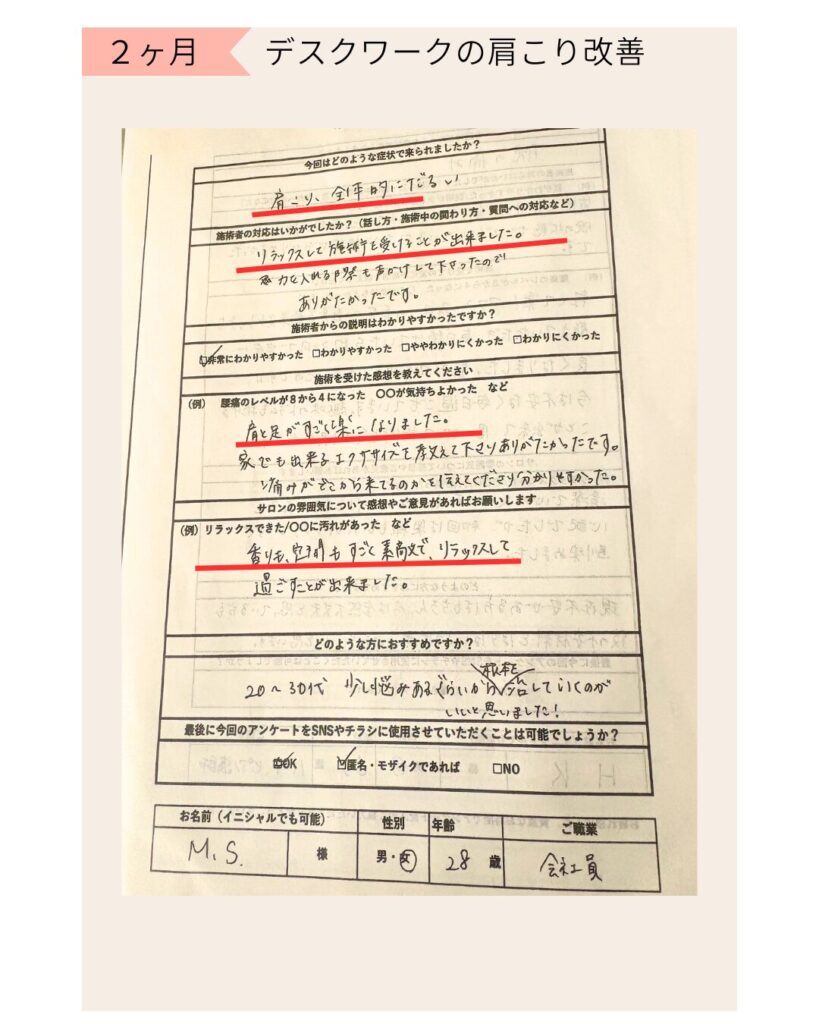 2ヶ月
デスクワークの肩こり改善
今回はどのような症状で来られましたか？
肩こり、全体的にだるい
施術者の対応はいかがでしたか？（話し方・施術中の関わり方・質問への対応など）
リラックスして施術を受けることが出来ました。
力を入れる際も声かけして下さったので
ありがたかったです。
施術者からの説明はわかりやすかったですか？
☑非常にわかりやすかった □わかりやすかった □ややわかりにくかった □わかりにくかった
施術を受けた感想を教えてください
（例） 腰痛のレベルが8から4になった 〇〇が気持ちよかった など
肩と足がすごく楽になりました。
家でも出来るエクササイズを教えて下さりありがたかったです。
痛みがどこから来てるのかを伝えてくださり分かりやすかった。
サロンの雰囲気について感想やご意見があればお願いします
（例）リラックスできた/〇〇に汚れがあった など
香りも、空間もすごく素敵で、リラックスして
過ごすことが出来ました。
どのような方におすすめですか？
20～30代 少し悩みあるぐらいから根本を治していくのが
いいと思いました！
最後に今回のアンケートをSNSやチラシに使用させていただくことは可能でしょうか？
□OK ☑匿名・モザイクであれば □NO
お名前（イニシャルでも可能） 性別 年齢 ご職業
M.S. 様 男・女 28 歳 会社員